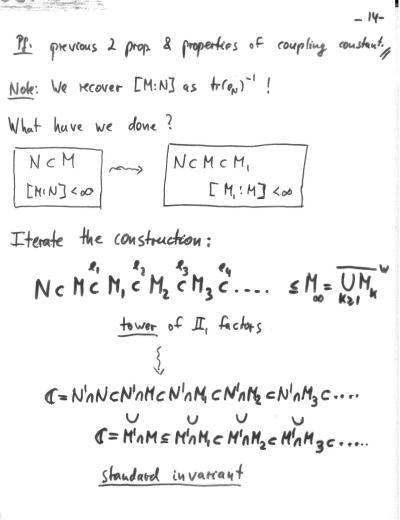 - 14 -
Pf. previous 2 prop. & properties of coupling constant. //
Note: We recover [M:N] as tr(e_N)^{-1} !
What have we done ?
N ⊂ M ⇝ N ⊂ M ⊂ M_1
[M:N] < ∞ [M_1 : M] < ∞
Iterate the construction:
e_1 e_2 e_3 e_4
N ⊂ M ⊂ M_1 ⊂ M_2 ⊂ M_3 ⊂ .... ≤ M_∞ = \overline{⋃_{k≥1} M_k}^w
tower of II_1 factors
ℂ = N'∩N ⊂ N'∩M ⊂ N'∩M_1 ⊂ N'∩M_2 ⊂ N'∩M_3 ⊂ ....
∪ ∪ ∪ ∪
ℂ = M'∩M ≤ M'∩M_1 ⊂ M'∩M_2 ⊂ M'∩M_3 ⊂ .....
standard invariant